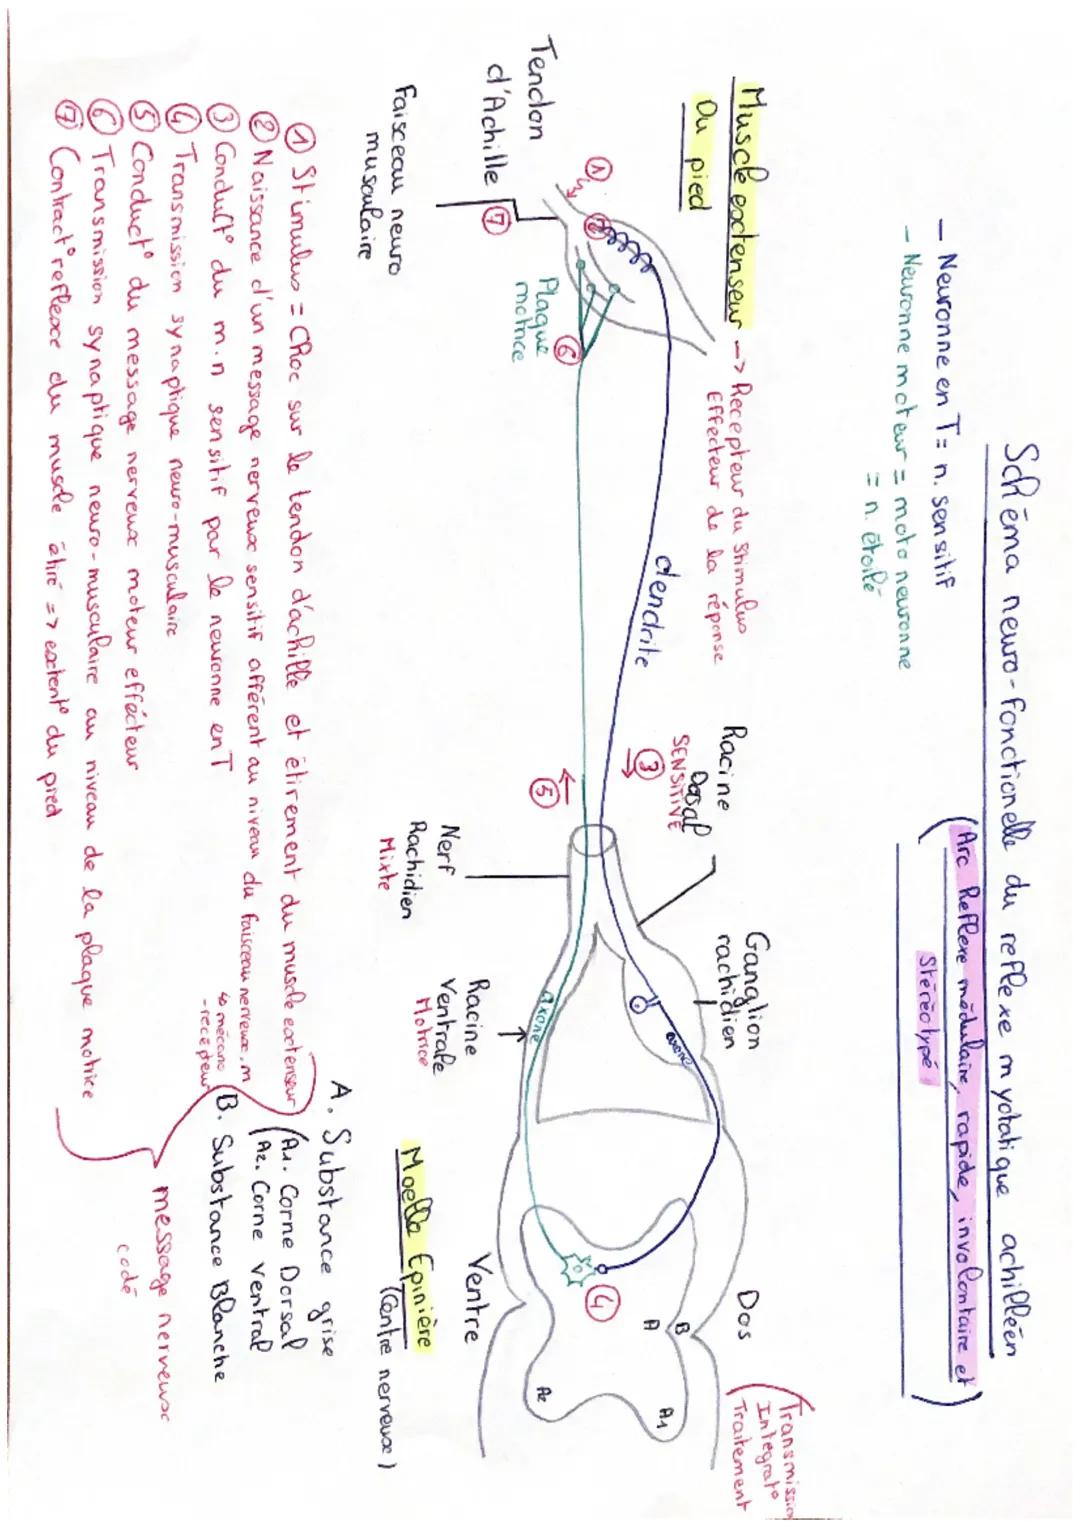 Schéma neuro-fonctionelle du reflexe myotatique achilléen
(Arc Reflexe médulaire, rapide, involontaire et
stéréotypé)
- Neuronne en T = n. sensitif
- Neuronne moteur = moto neuronne
= n. étoilé
Muscle extenseur -> Récepteur du stimulus
Du pied
Effecteur de la réponse
Tendon
d'Achille
Faisceau neuro
musculaire
1
2
7
Plaque
motrice
6
dendrite
Racine
Dorsal
SENSITIVE
3
5
Nerf
Rachidien
Mixte
Ganglion
rachidien
axone
axone
Racine
Ventrale
Motrice
Dos
(Transmission
Integrat°
Traitement
4
B
A
A1
A2
Ventre
Moelle Epinière
(Centre nerveux)
A. Substance grise
(A1. Corne Dorsal
A2. Corne Ventral
B. Substance Blanche
① Stimulus = Choc sur le tendon d'achille et étirement du muscle extenseur
② Naissance d'un message nerveux sensitif afférent au niveau du faisceau nerveux.m
↳ mécano
-recepteur
③ Conduct° du m.n sensitif par le neuronne en T
④ Transmission synaptique neuro-musculaire
⑤ Conduct° du message nerveux moteur effécteur
⑥ Transmission synaptique neuro-musculaire au niveau de la plaque motrice
⑦ Contract° reflexe du muscle étiré => extent° du pied
message nerveux
codé